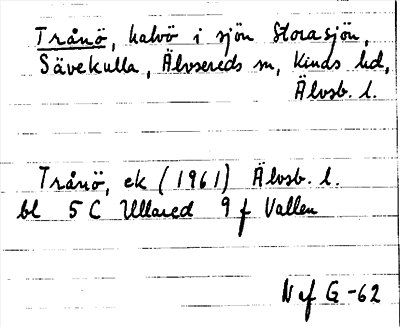 Trånö, halvö i sjön Storasjön,
Sävekulla, Älvsereds sn, Kinds hd,
Älvsb. l.
Trånö, ek (1961) Älvsb. l.
bl 5 C Ullared 9 f Vallen
N ef G -62